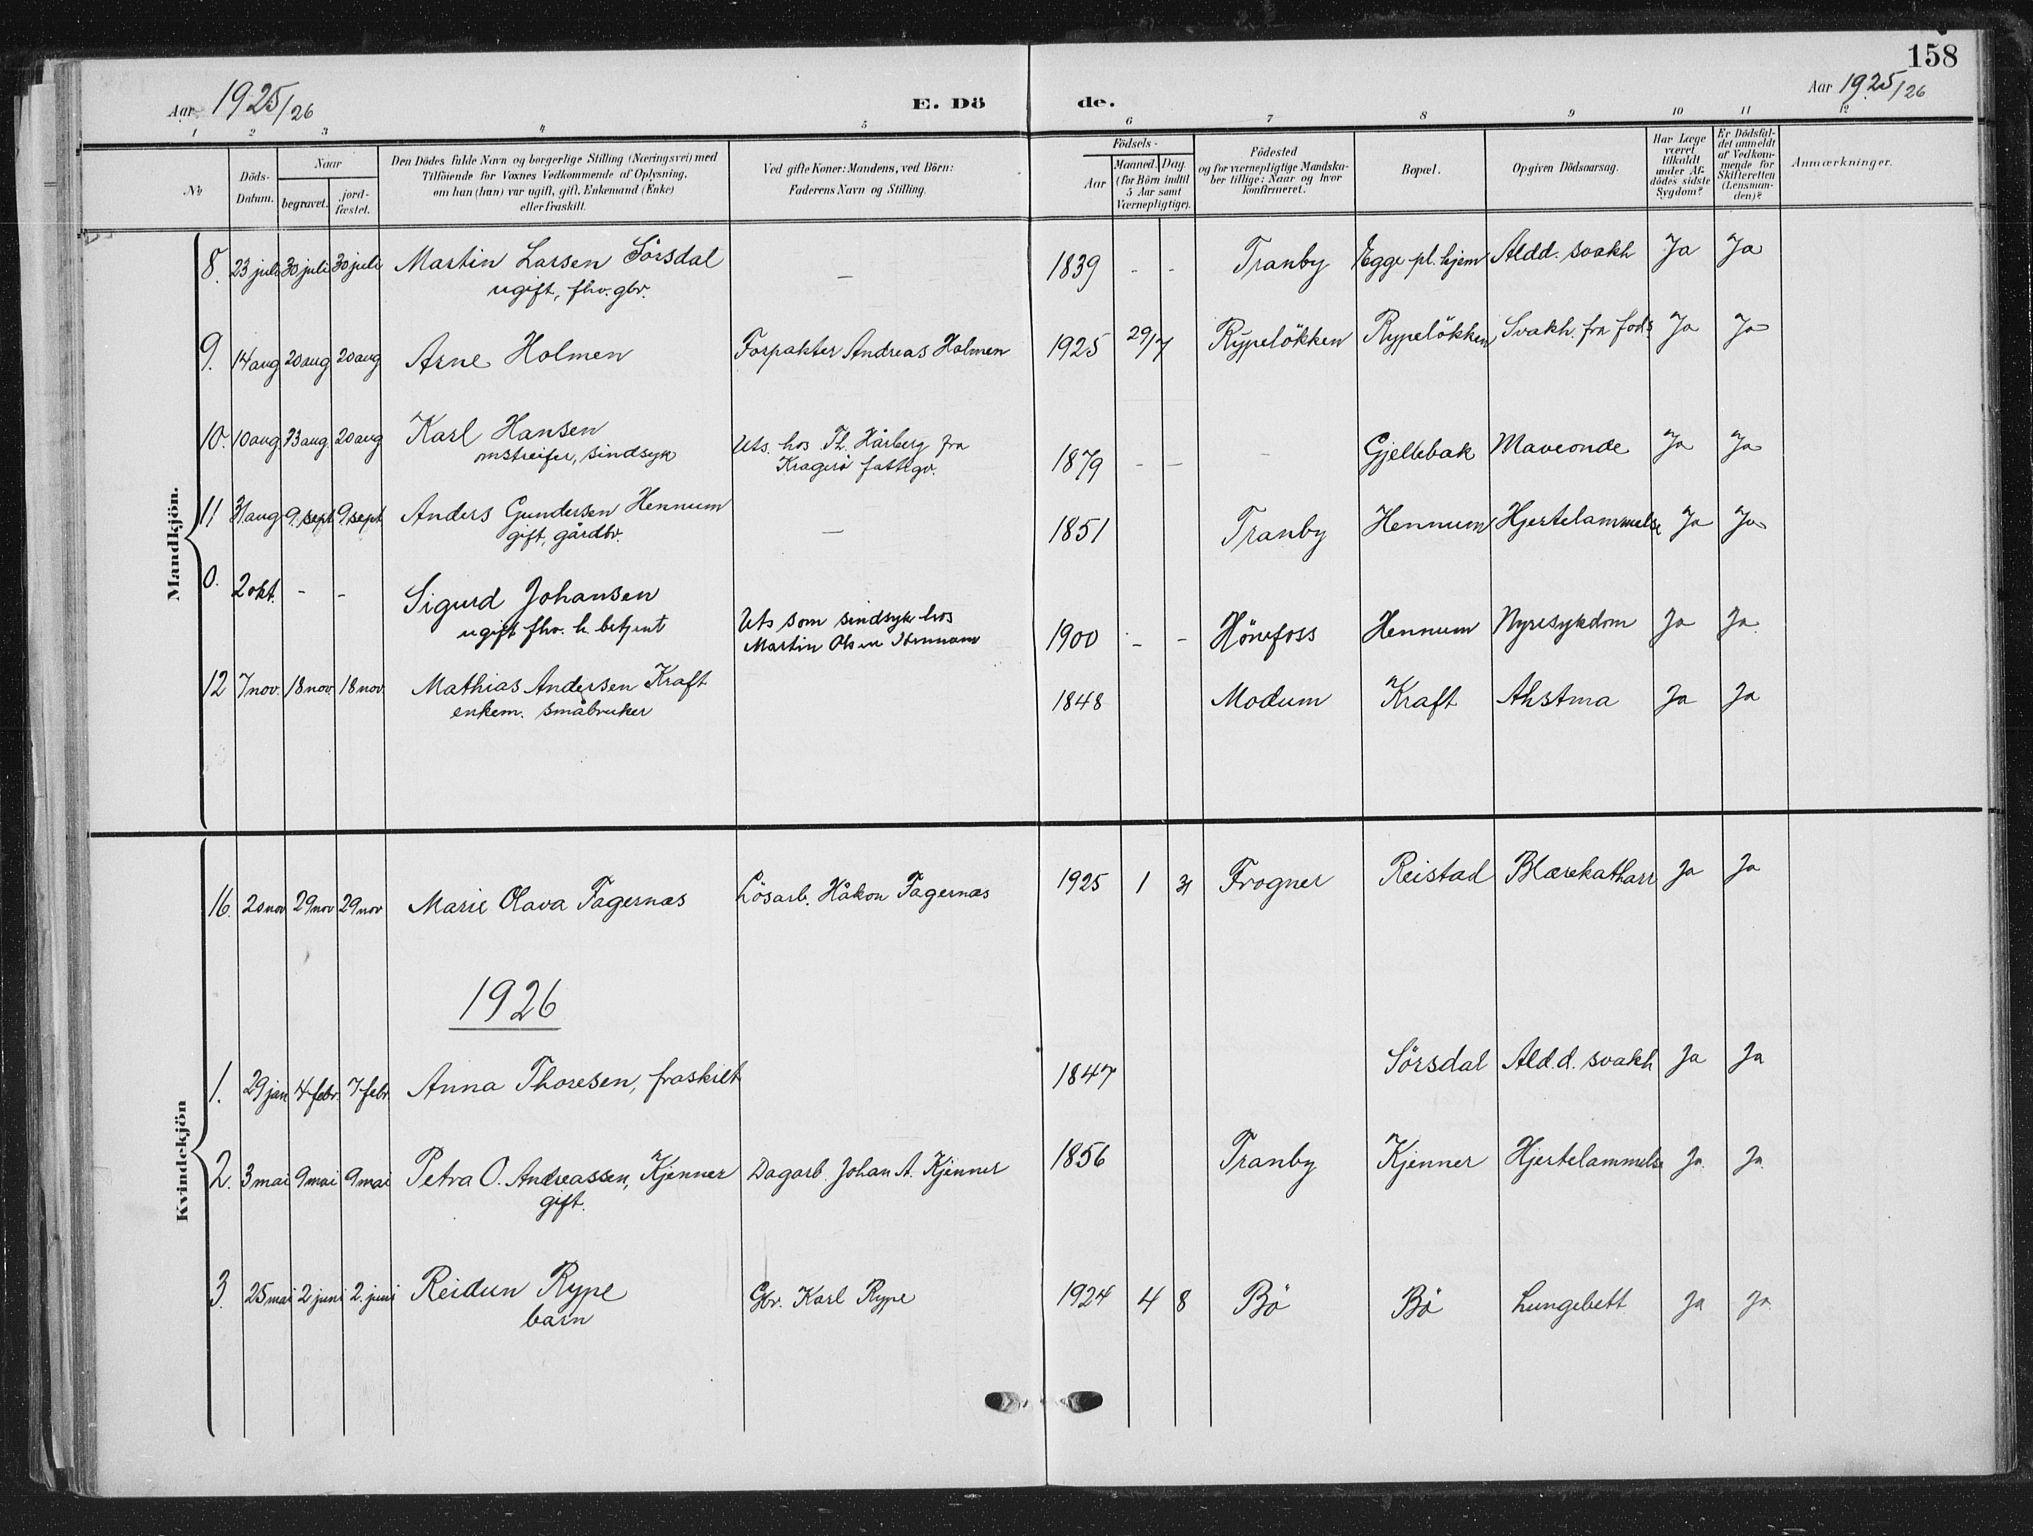 158
Aar 1925/26
E. Dö de.
Aar 1925/26
1 2 3 4 5 6 7 8 9 10 11 12
No
Döds-Datum.
Naar
begravet.
jord-fæstet.
Den Dödes fulde Navn og borgerlige Stilling (Næringsvei) med
Tilföiende for Voxnes Vedkommende af Oplysning,
om han (hun) var ugift, gift, Enkemand (Enke)
eller fraskilt.
Ved gifte Koner: Mandens, ved Börn:
Faderens Navn og Stilling.
Födsels-
Aar
Maaned. Dag.
(for Börn indtil
5 Aar samt
Værnepligtige).
Födested
og for værnepligtige Mandska-
ber tillige: Naar og hvor
konfirmeret.
Bopæl.
Opgiven Dödsaarsag.
Har Læge
været
tilkaldt
under Af-
dödes sidste
Sygdom?
Er Dödsfal-
det anmeldt
af Vedkom-
mende for
Skifteretten
(Lensman-
den)?
Anmærkninger.
Mandkjön.
8. 23 juli 30 juli 30 juli Martin Larsen Sörsdal — 1839 - - Tranby Egge pl. hjem Aldd. svakh Ja Ja
ugift, fhv. gbr.
9. 14 aug 20 aug 20 aug Arne Holmen Forpakter Andreas Holmen 1925 29/7 Rypelökken Rypelökken Svakh. fra föds. Ja Ja
10. 10 aug 13 aug. 20 aug Karl Hansen Uts. hos Th. Hårberg fra 1879 - - - Gjellebæk Maveonde Ja Ja
omstreifer, sindsyk Kragerö fattigv.
11 31 aug 9. sept 9. sept Anders Gundersen Hennum — 1851 Tranby Hennum Hjertelammelse Ja Ja
gift, gårdbr.
0. 2 okt. - - Sigurd Johansen Uts som sindsyk hos 1900 - - Hönefoss Hennum Nyresykdom Ja Ja
ugift fhv. h. betjent Martin Olsen Hennum
12 7 nov. 18 nov 18 nov. Mathias Andersen Kraft 1848 Modum Kraft Ahstma Ja Ja
enkem. småbruker
Kvindekjön
16. 20 nov 29 nov 29 nov Marie Olava Fagernæs Lösarb. Håkon Fagernæs 1925 1 31 Frogner Reistad Blærekatharr Ja Ja
1926
1. 29 jan 4 febr. 7 febr. Anna Thoresen, fraskilt 1847 Sörsdal Ald.d. svakh Ja Ja
2. 3 mai 9 mai 9 mai Petra O. Andreassen, Kjenner Dagarb. Johan A. Kjenner 1856 Tranby Kjenner Hjertelammelse Ja. Ja.
gift.
3. 25 mai 2 juni 2. juni Reidun Rype Gbr. Karl Rype 1924 4 8 Bö Bö Lungebett Ja Ja.
barn